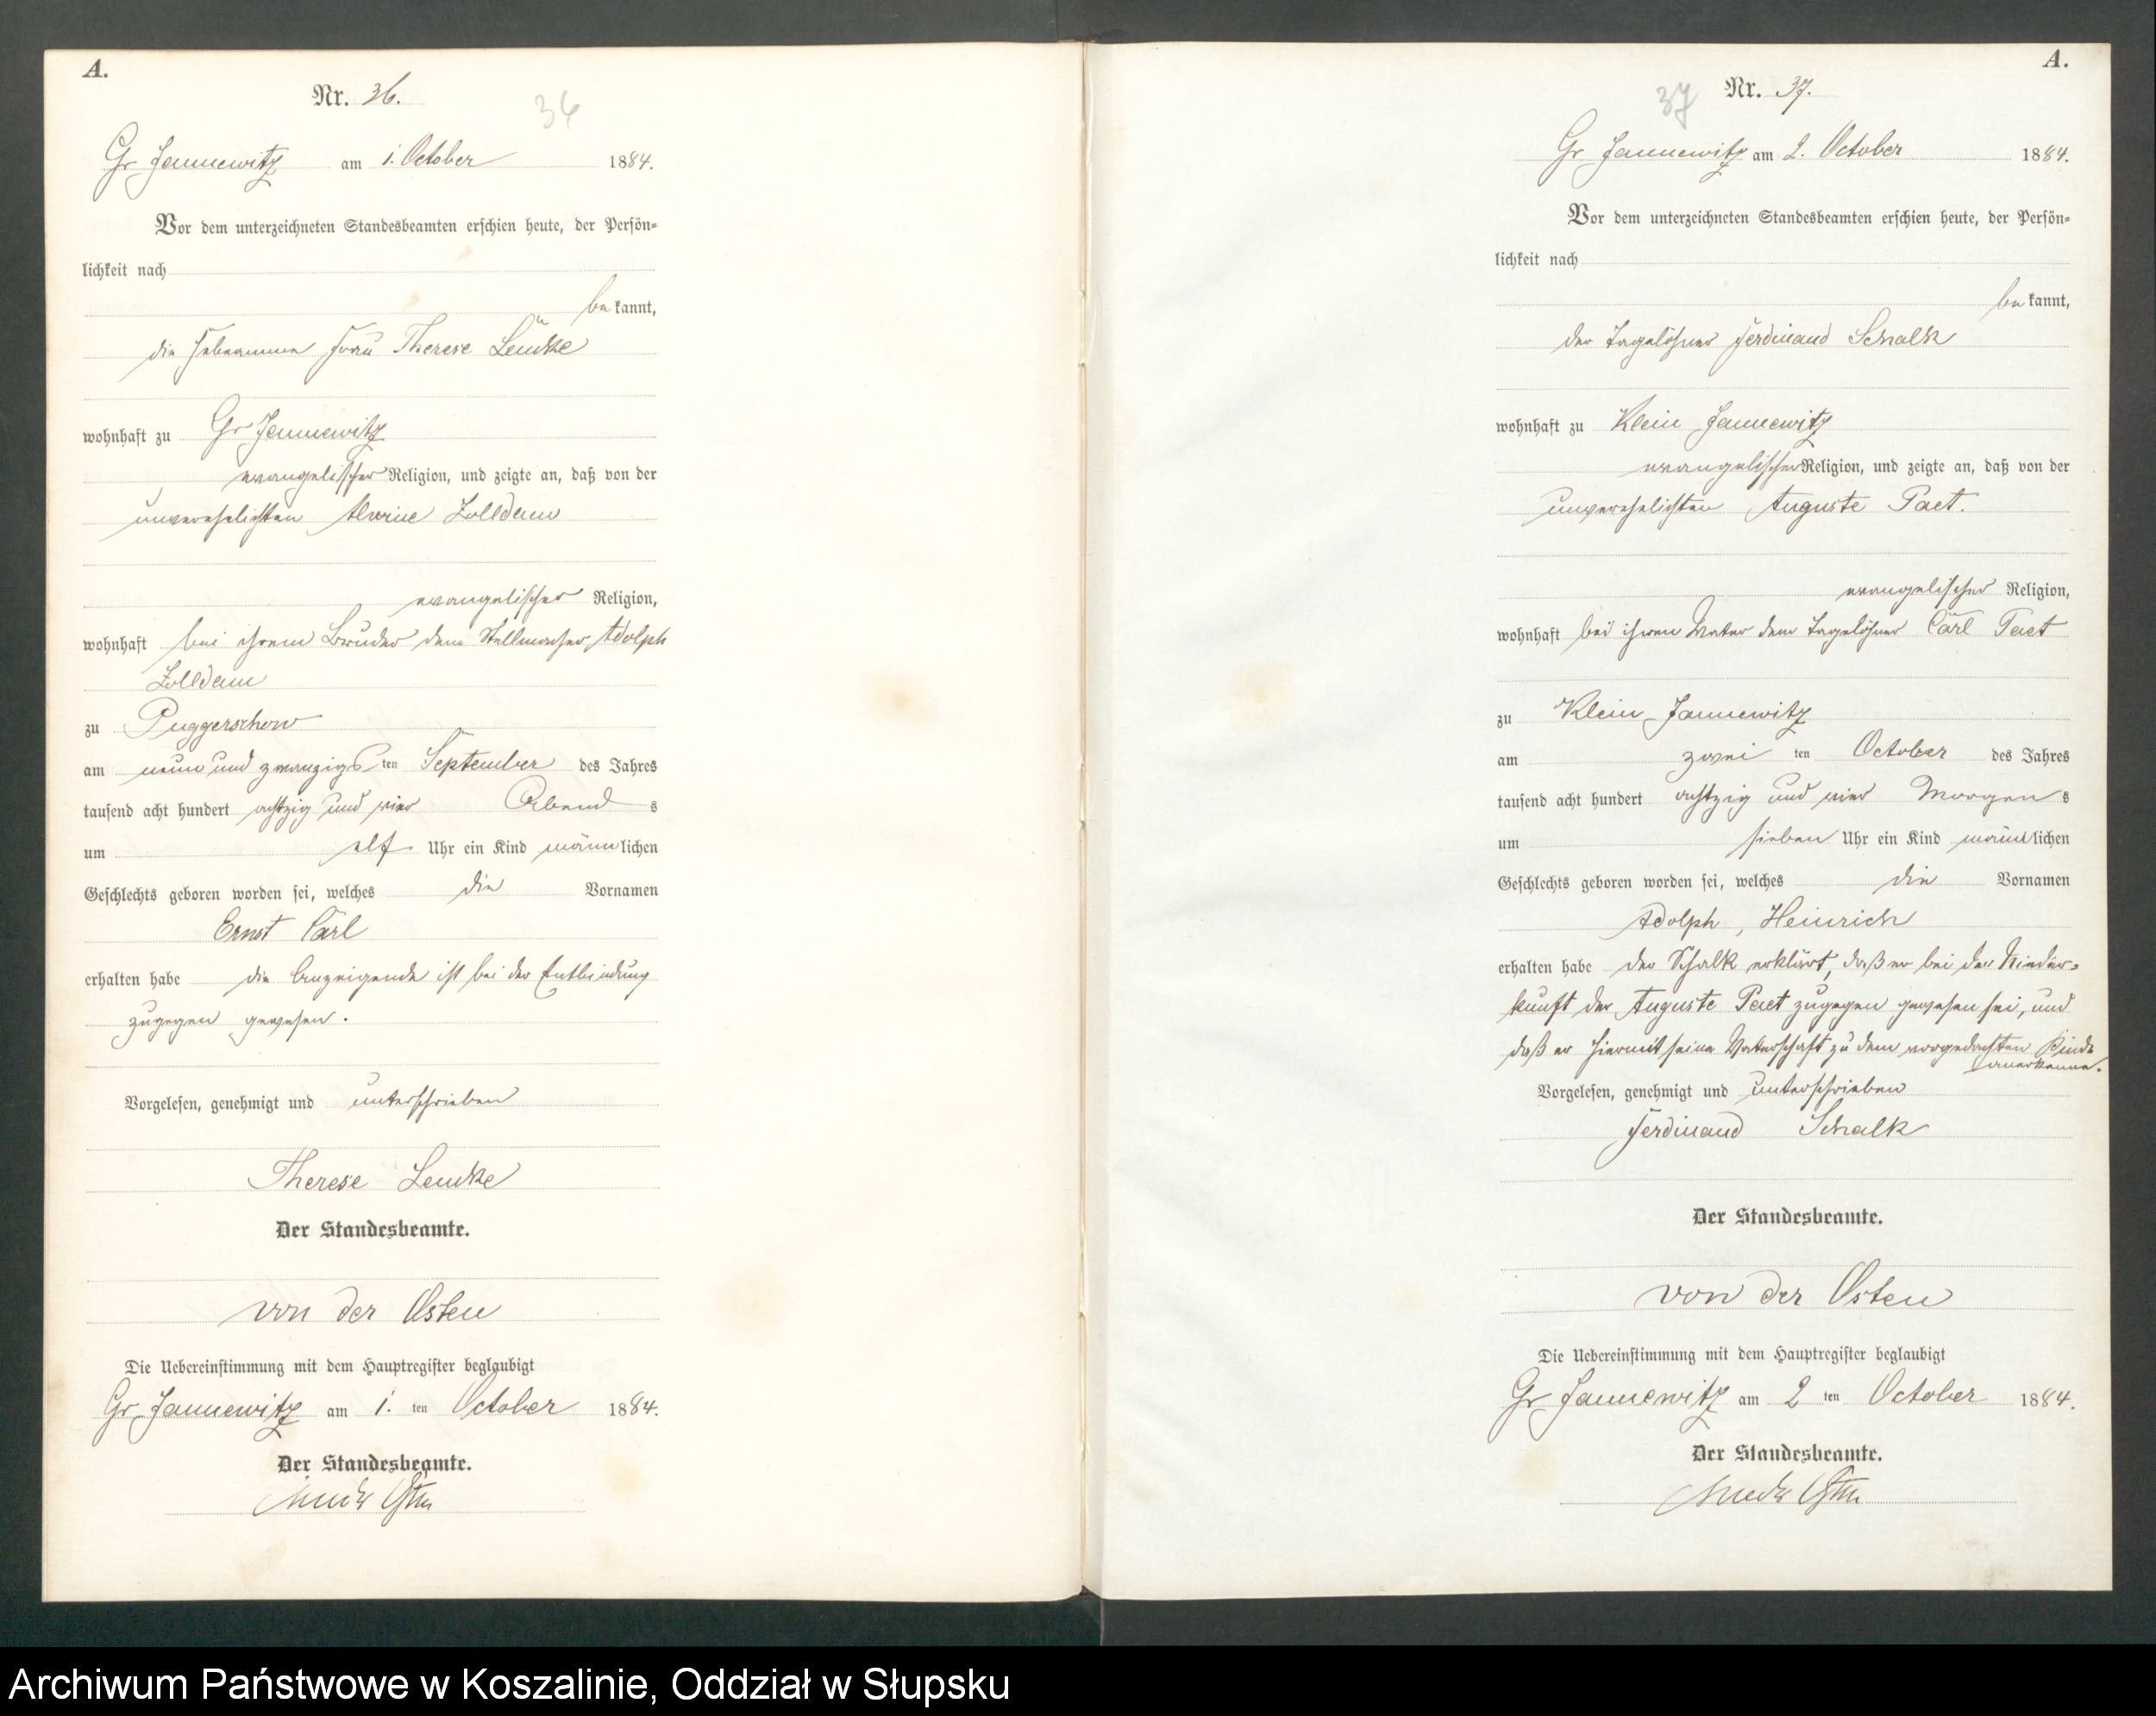 A.
Nr. 36.
36
Gr Jannewitz am 1. October 1884.
Vor dem unterzeichneten Standesbeamten erschien heute, der Persön-
lichkeit nach
be kannt,
die Hebeamme Frau Therese
wohnhaft zu Gr Jannewitz
evangelischer Religion, und zeigte an, daß von der
unverehelichten Alwine Zolldann
evangelischer Religion,
wohnhaft bei ihrem Bruder dem Stellmacher Adolph
Zolldann
zu Puggerschow
am neun und zwanzigsten September des Jahres
tausend acht hundert achtzig und vier Abends
um elf Uhr ein Kind männlichen
Geschlechts geboren worden sei, welches die Vornamen
Ernst Carl
erhalten habe die Anzeigende ist bei der Entbindung
zugegen gewesen.
Vorgelesen, genehmigt und unterschrieben
Therese
Der Standesbeamte.
von der Osten
Die Uebereinstimmung mit dem Hauptregister beglaubigt
Gr Jannewitz am 1. ten October 1884.
Der Standesbeamte.
Osten
A.
Nr. 37.
37
Gr Jannewitz am 2. October 1884.
Vor dem unterzeichneten Standesbeamten erschien heute, der Persön-
lichkeit nach
be kannt,
der Tagelöhner Ferdinand Schalk
wohnhaft zu Klein Jannewitz
evangelischer Religion, und zeigte an, daß von der
unverehelichten Auguste Paet.
evangelischer Religion,
wohnhaft bei ihrem Vater dem Tagelöhner Carl Paet
zu Klein Jannewitz
am zwei ten October des Jahres
tausend acht hundert achtzig und vier Morgens
um sieben Uhr ein Kind männlichen
Geschlechts geboren worden sei, welches die Vornamen
Adolph, Heinrich
erhalten habe der Schalk erklärt, daß er bei der Nieder-
kunft der Auguste Paet zugegen gewesen sei, und
daß er hiermit seine Vaterschaft zu dem vorgedachten Kinde
anerkenne.
Vorgelesen, genehmigt und unterschrieben
Ferdinand Schalk
Der Standesbeamte.
von der Osten
Die Uebereinstimmung mit dem Hauptregister beglaubigt
Gr Jannewitz am 2 ten October 1884.
Der Standesbeamte.
Osten
Archiwum Państwowe w Koszalinie, Oddział w Słupsku